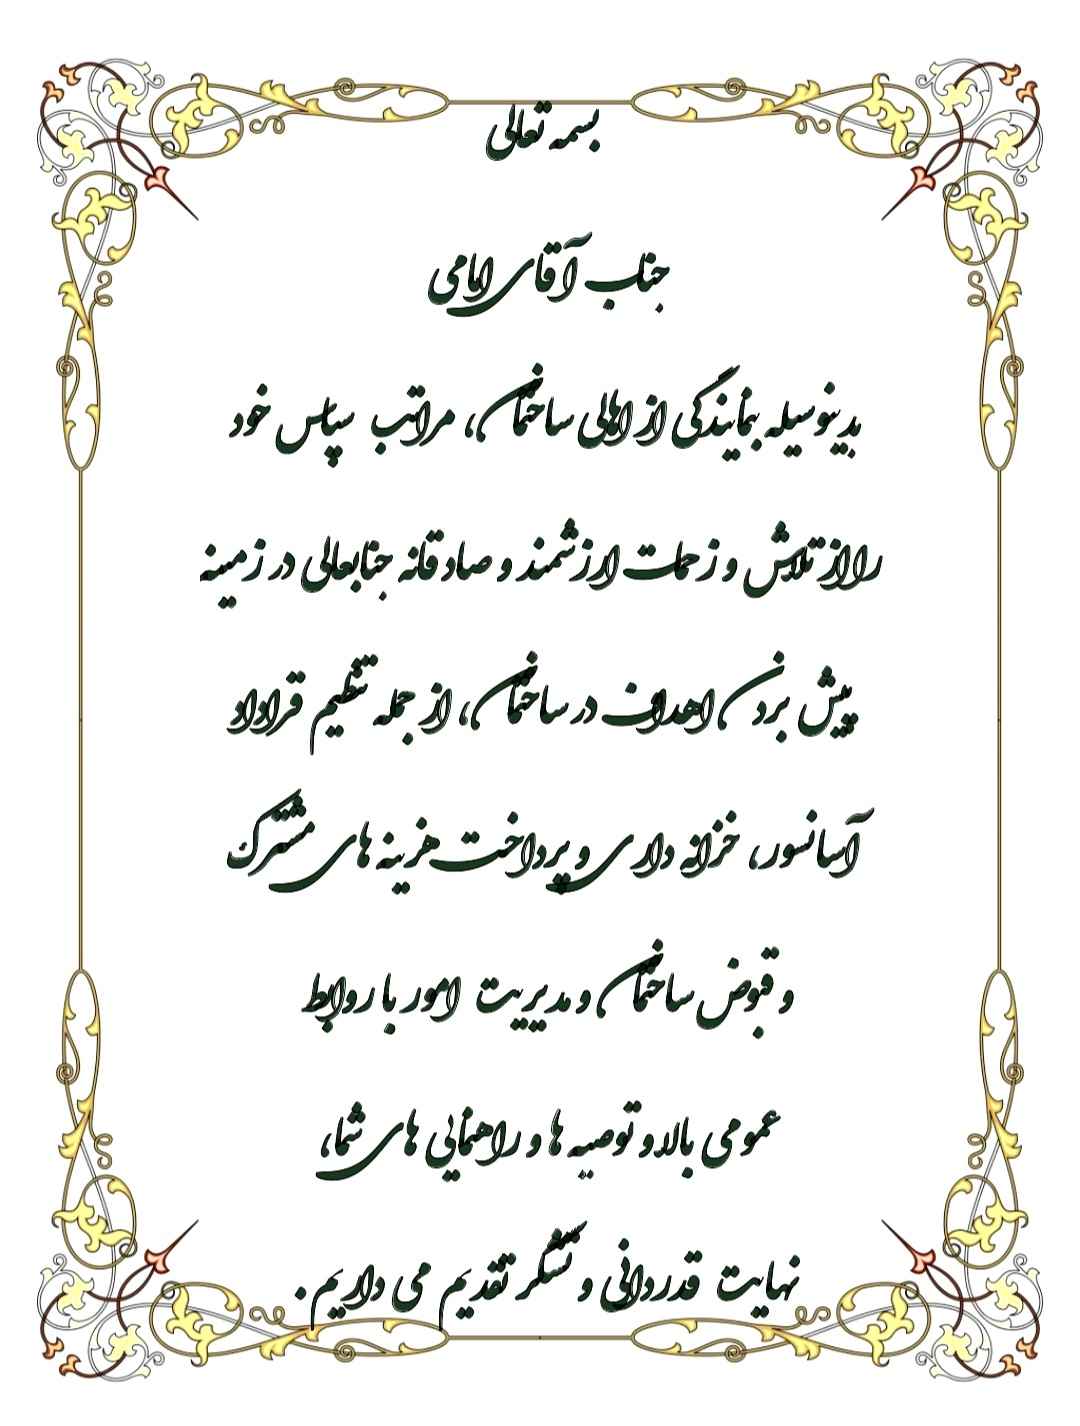 بسمه تعالی
جناب آقای امامی
بدینوسیله بنمایندگی از اهالی ساختمان، مراتب سپاس خود
را از تلاش و زحمات ارزشمند و صادقانه جنابعالی در زمینه
پیش بردن اهداف در ساختمان، از جمله تنظیم قراداد
آسانسور، خزانه داری و پرداخت هزینه های مشترک
و قبوض ساختمان و مدیریت امور با روابط
عمومی بالا و توصیه ها و راهنمایی های شما،
نهایت قدردانی و تشکر تقدیم می داریم.